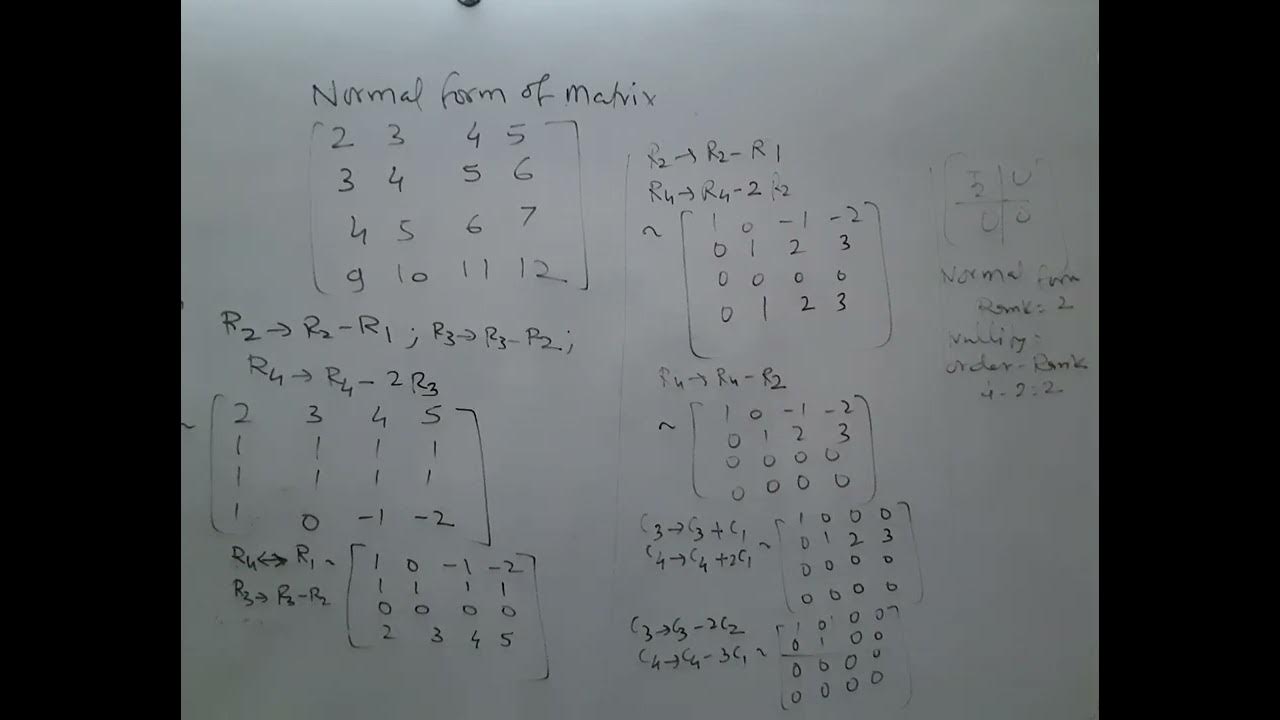 Normal form of matrix
2 3 4 5
3 4 5 6
4 5 6 7
9 10 11 12
R2 → R2 - R1 ; R3 → R3 - R2 ;
R4 → R4 - 2R3
~ 2 3 4 5
1 1 1 1
1 1 1 1
1 0 -1 -2
R4 ↔ R1 ~ 1 0 -1 -2
R3 → R3 - R2 1 1 1 1
0 0 0 0
2 3 4 5
R2 → R2 - R1
R4 → R4 - 2R2
~ 1 0 -1 -2
0 1 2 3
0 0 0 0
0 1 2 3
R4 → R4 - R2
~ 1 0 -1 -2
0 1 2 3
0 0 0 0
0 0 0 0
C3 → C3 + C1 ~ 1 0 0 0
C4 → C4 + 2C1 0 1 2 3
0 0 0 0
0 0 0 0
C3 → C3 - 2C2 ~ 1 0 0 0
C4 → C4 - 3C1 0 1 0 0
0 0 0 0
0 0 0 0
I2 0
0 0
Normal form
Rank = 2
Nullity =
order - Rank
4 - 2 = 2